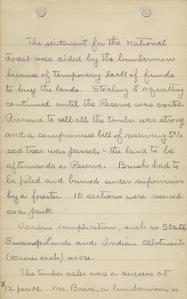 The sentiment for the National
Forest was aided by the lumbermen
because of temporary lack of funds
to buy the lands. Stealing & squatting
continued until the Reserve was created.
Pressure to sell all the timber was strong
and a compromise bill of reserving 5%
seed trees was passed, & the land to be
afterwards a Reserve. Brush had to
be piled and burned under supervision
by a forester. 10 sections were reserved
as a park.
Various complications, such as State
Swamplands and Indian Allotments
(80 acres each) arose.
The timber sales were a success at
per M. Mr. Bruce, a lumberman, is